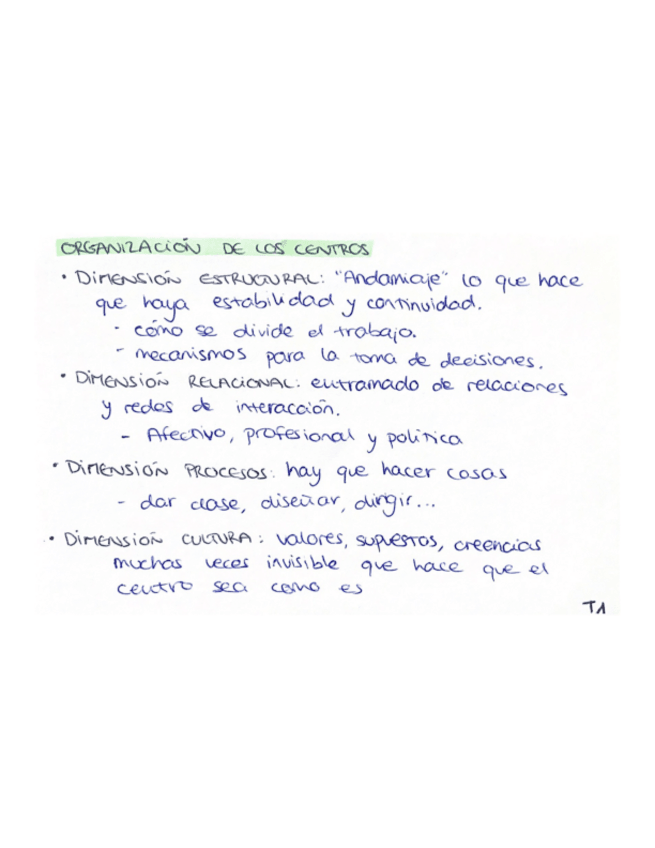 ORGANIZACIÓN DE LOS CENTROS
• DIMENSIÓN ESTRUCTURAL: "Andamiaje" lo que hace
que haya estabilidad y continuidad.
- cómo se divide el trabajo.
- mecanismos para la toma de decisiones.
• DIMENSIÓN RELACIONAL: entramado de relaciones
y redes de interacción.
- Afectivo, profesional y política
• DIMENSIÓN PROCESOS: hay que hacer cosas
- dar clase, diseñar, dirigir...
• DIMENSIÓN CULTURA: valores, supuestos, creencias
muchas veces invisible que hace que el
centro sea como es
T1